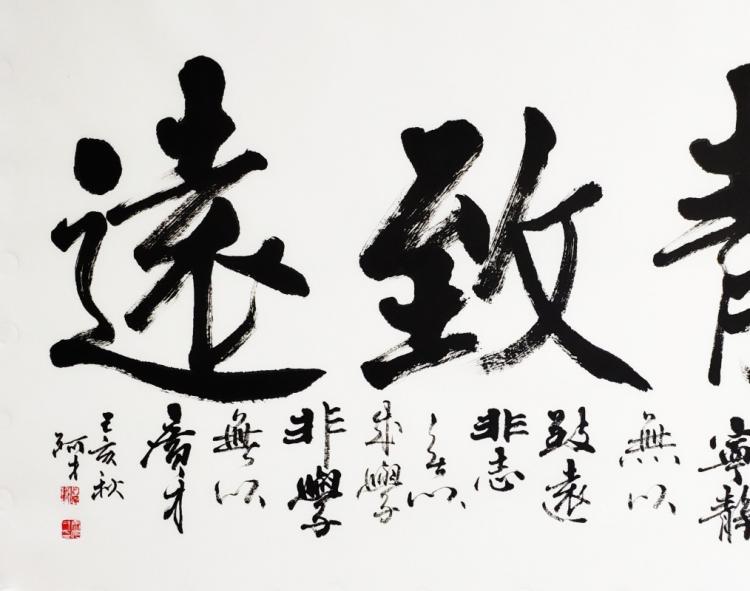 致遠
寧静
無以
致遠
非志
無以
成學
非學
無以
廣才
己亥秋
阿才